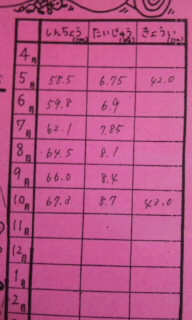 しんちょう(cm) たいじゅう(kg) きょうい(cm)
4月
5月 58.5 6.75 42.0
6月 59.8 6.9
7月 62.1 7.85
8月 64.5 8.1
9月 66.0 8.4
10月 67.3 8.7 43.0
11月
12月
1月
2月